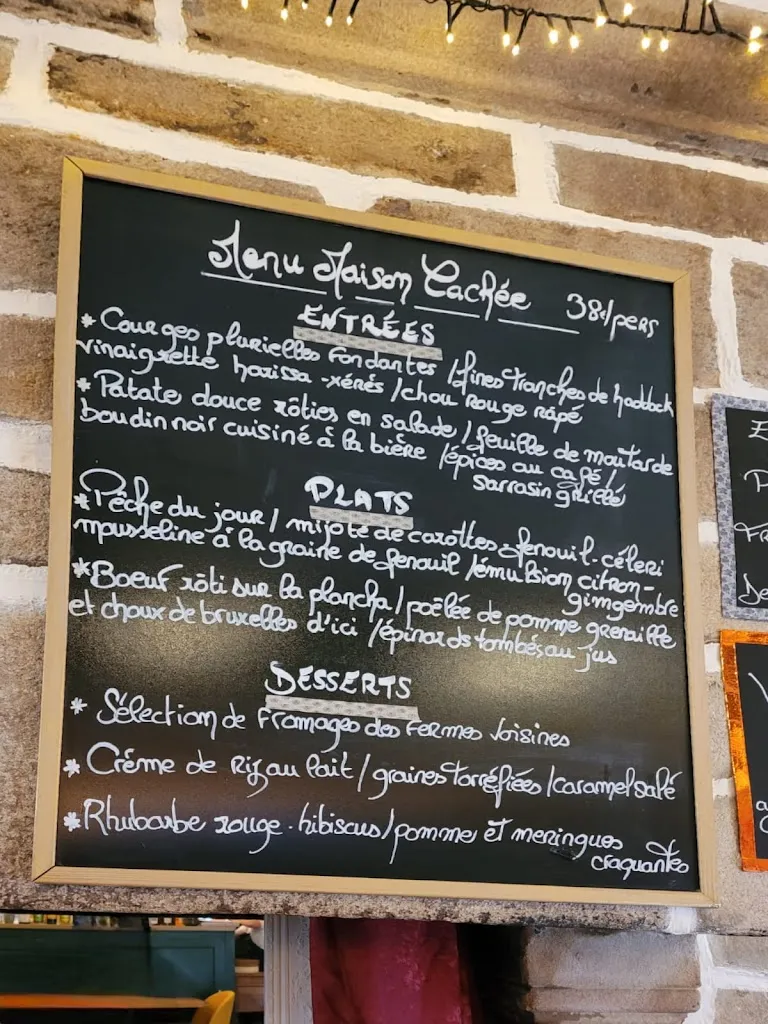 Menu Maison Cachée 38€/pers
ENTRÉES
* Courges plurielles fondantes / fines tranches de haddock
vinaigrette harissa-xérès / chou rouge râpé
* Patate douce rôties en salade / feuille de moutarde
boudin noir cuisiné à la bière / épices au café /
sarrasin grillé
PLATS
* Pêche du jour / mijoté de carottes-fenouil-céleri
mousseline à la graine de fenouil / émulsion citron-
gimgembre
* Boeuf rôti sur la plancha / poêlée de pomme grenaille
et choux de bruxelles d'ici / épinards tombés au jus
DESSERTS
* Sélection de fromages des fermes voisines
* Crème de Riz au lait / graines torréfiées / caramel salé
* Rhubarbe rouge-hibiscus / pomme et meringues
craquantes